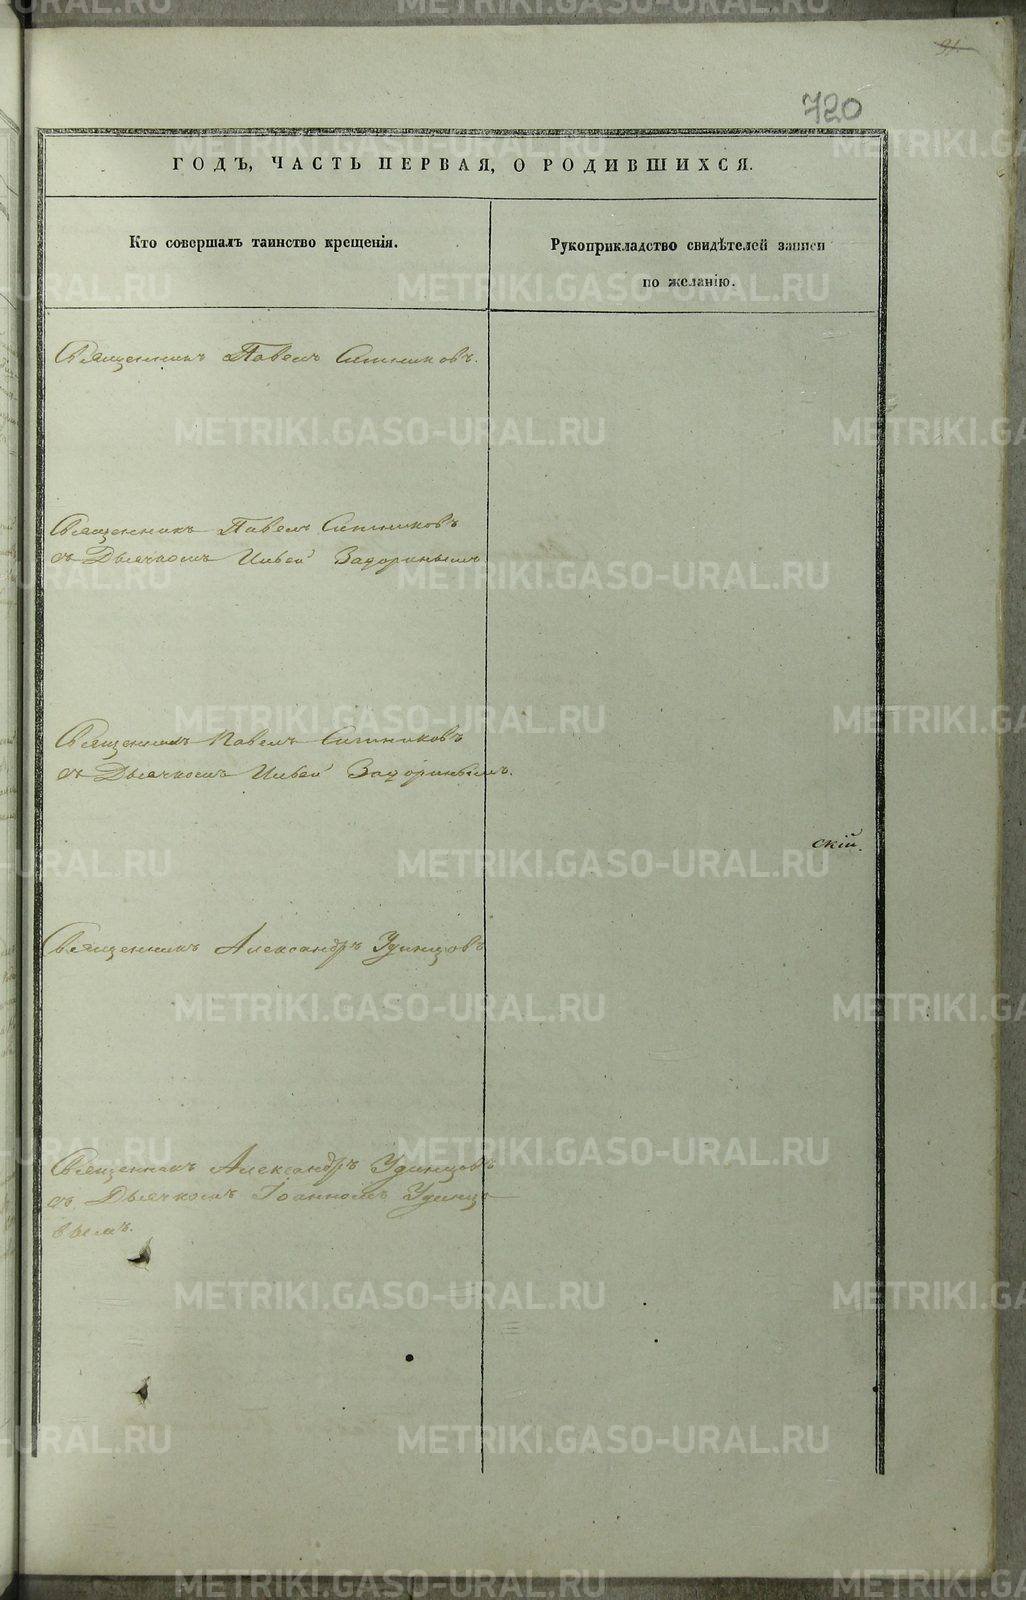 91.
720
ГОДЪ, ЧАСТЬ ПЕРВАЯ, О РОДИВШИХСЯ.
Кто совершалъ таинство крещенія.
Рукоприкладство свидѣтелей записи
по желанію.
Священникъ Павелъ Ситниковъ.
Священникъ Павелъ Ситниковъ
съ Дьячкомъ Ильей Задоринымъ
Священникъ Павелъ Ситниковъ
съ Дьячкомъ Ильей Задоринымъ.
скій.
Священникъ Александръ Удинцовъ
Священникъ Александръ Удинцовъ
съ Дьячкомъ Іоанномъ Удинцо-
вымъ.
METRIKI.GASO-URAL.RU